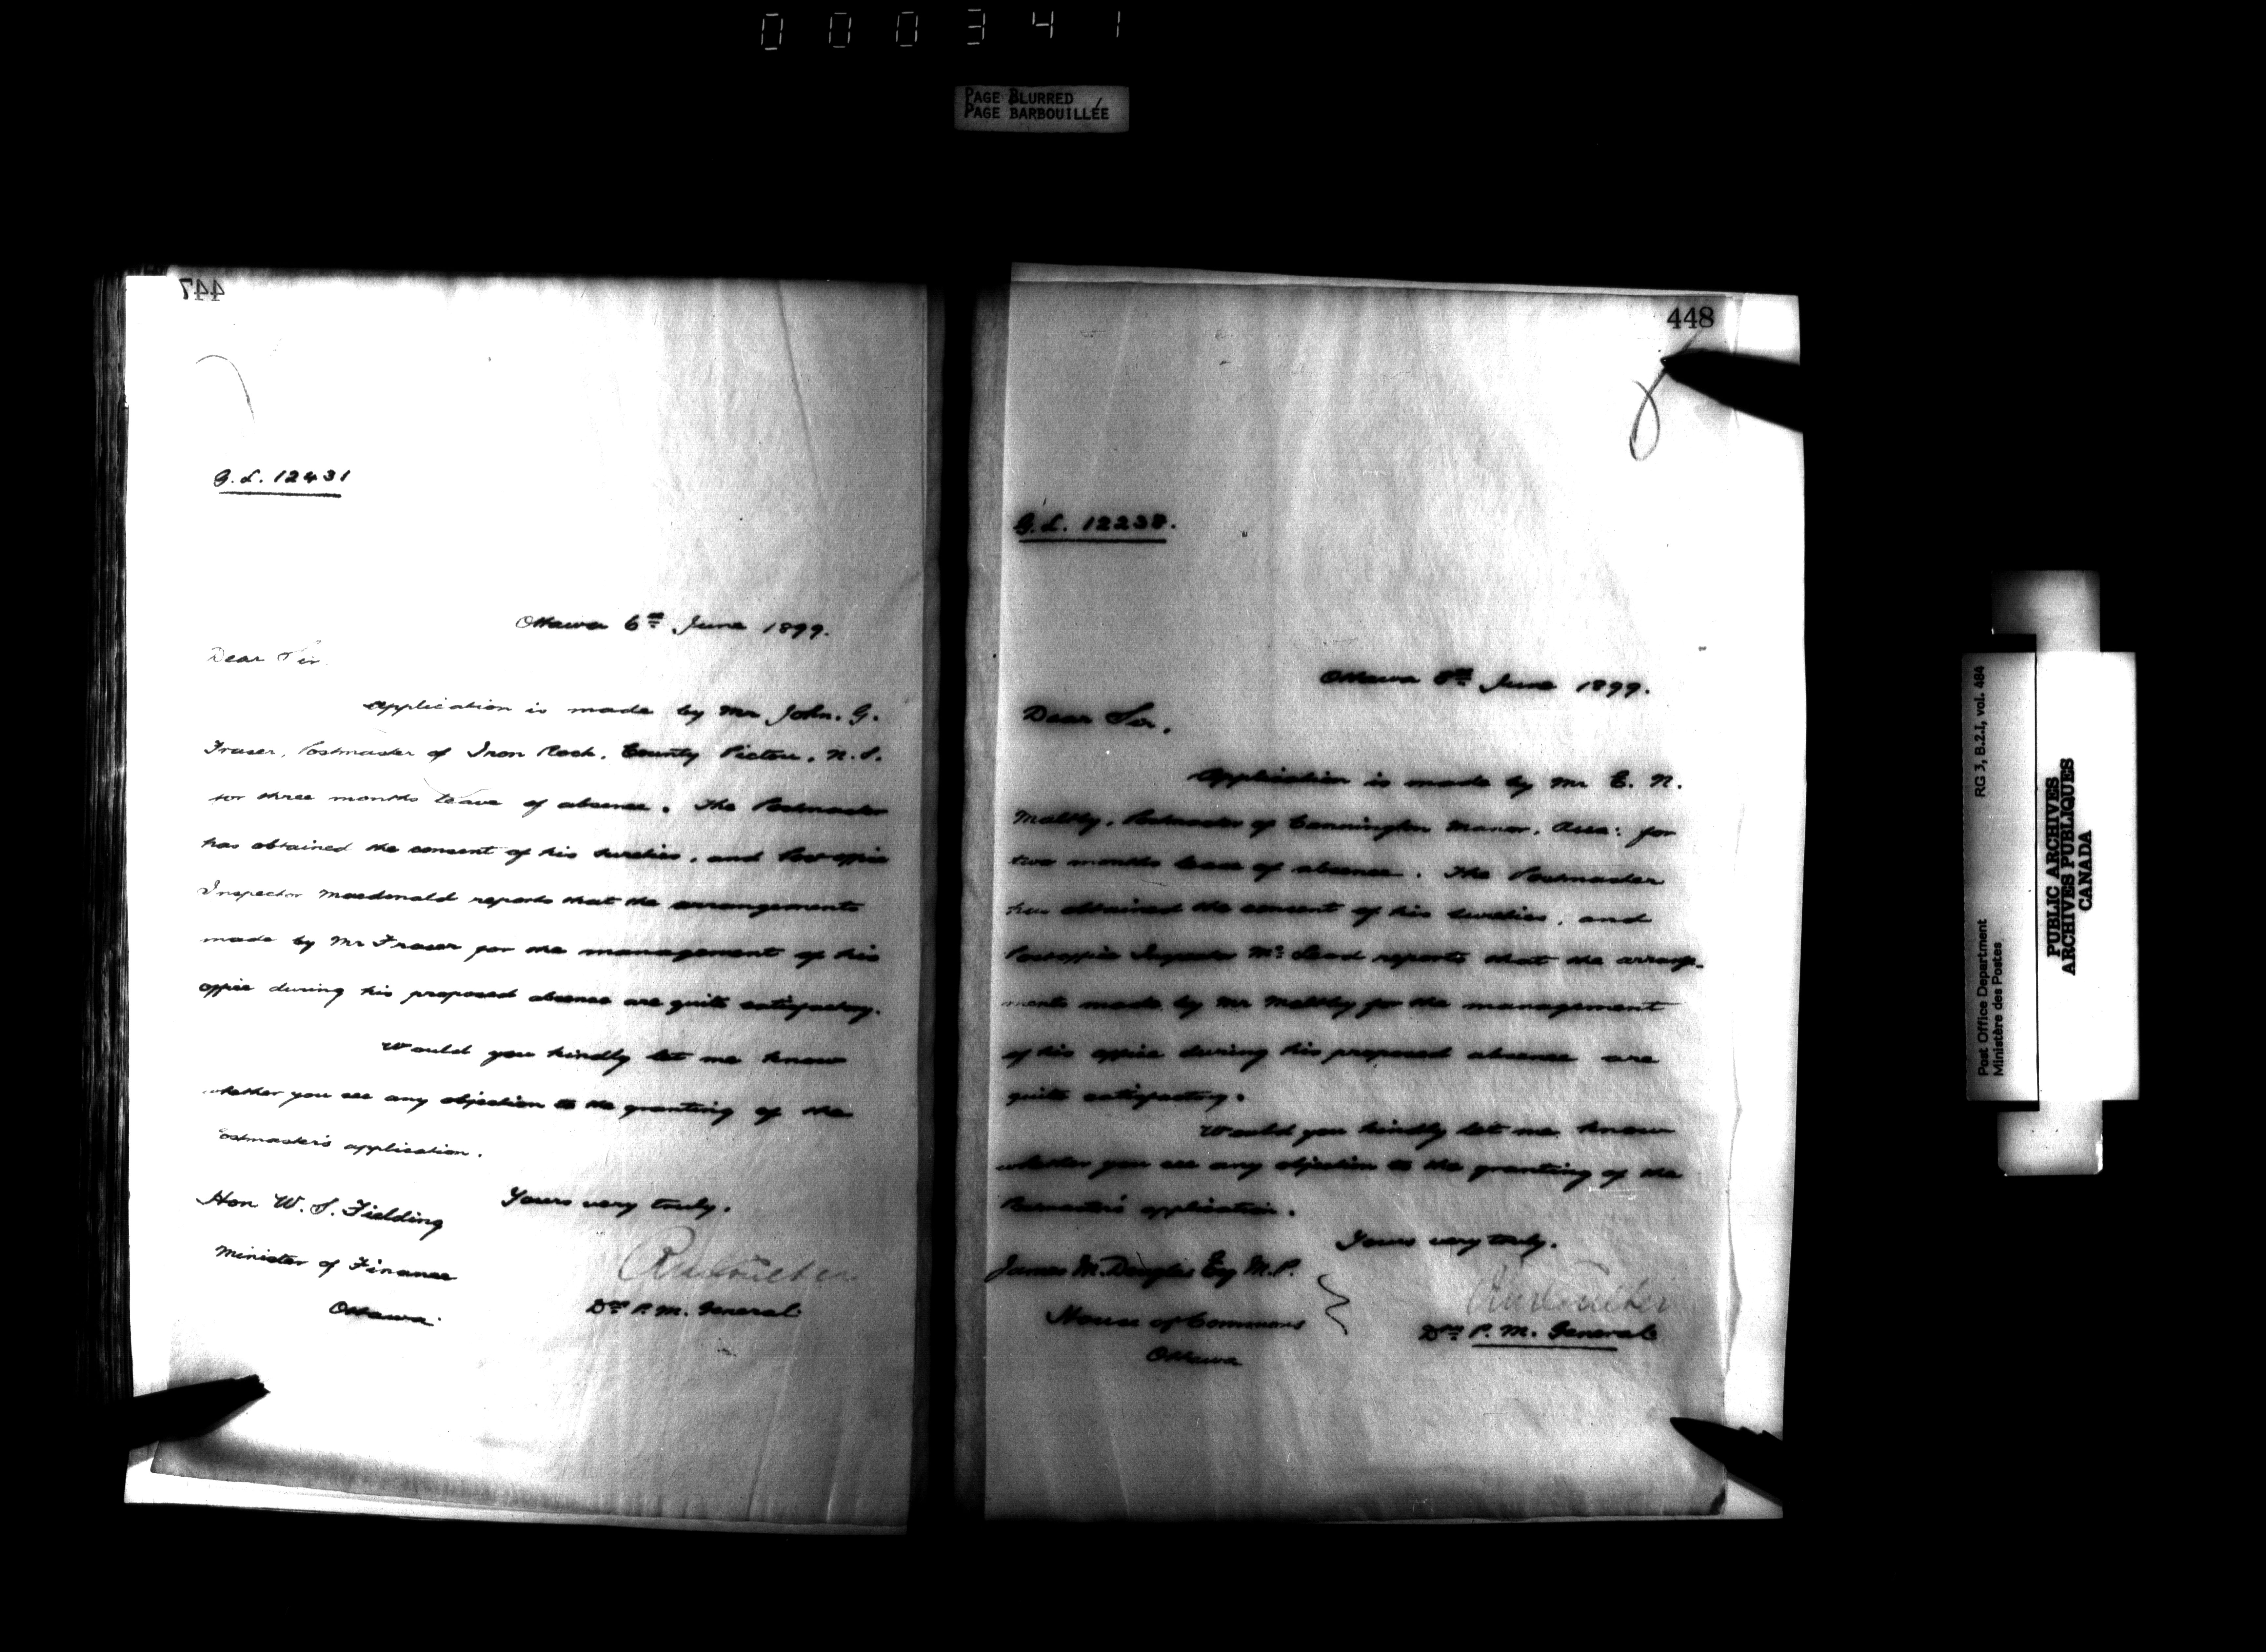 000341
PAGE BLURRED
PAGE BARBOUILLÉE
447
G.L. 12431
Ottawa 6th June 1899.
Dear Sir
Application is made by Mr John. G.
Fraser, Postmaster of Iron Rock, County Pictou, N.S.
for three months leave of absence. The Postmaster
has obtained the consent of his sureties, and Post office
Inspector Macdonald reports that the arrangements
made by Mr Fraser for the management of his
office during his proposed absence are quite satisfactory.
Would you kindly let me know
whether you see any objection to the granting of the
Postmaster's application.
Yours very truly.
Hon W. S. Fielding
Minister of Finance
Ottawa.
RM Coulter
Dy P. M. General.
448
G.L. 12238.
Ottawa 8th June 1899.
Dear Sir,
Application is made by Mr E. N.
Maltby, Postmaster of Cannington Manor, Assa: for
two months leave of absence. The Postmaster
has obtained the consent of his sureties, and
Post office Inspector McLeod reports that the arrange-
ments made by Mr Maltby for the management
of his office during his proposed absence are
quite satisfactory.
Would you kindly let me know
whether you see any objection to the granting of the
Postmaster's application.
Yours very truly.
James M. Douglas Esq M.P.
House of Commons
Ottawa
RM Coulter
Dy P. M. General
Post Office Department
Ministère des Postes
RG 3, B.2.I, vol. 484
PUBLIC ARCHIVES
ARCHIVES PUBLIQUES
CANADA